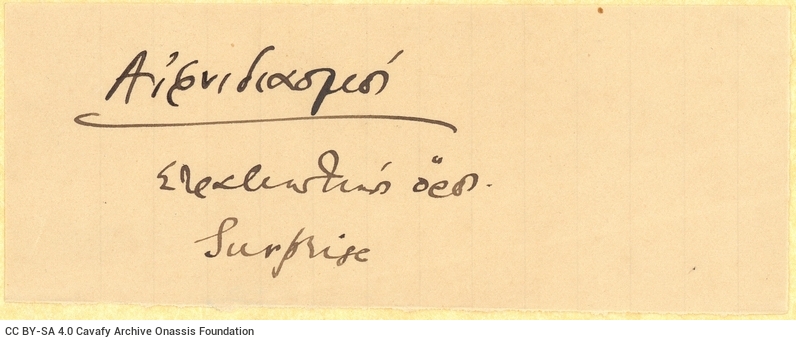 Αἰφνιδιασμός
Στρατιωτικός ὅρος.
Surprise
CC BY-SA 4.0 Cavafy Archive Onassis Foundation